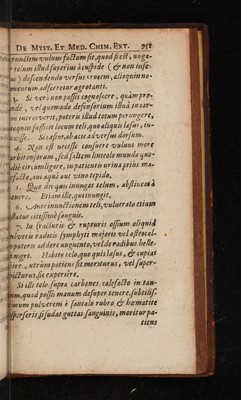 DE MYST. ET MED. CHIM. EXT. 951
punctim vulnus factum sit, quod si est, unge-
telum illud superius à cuspide (& non infe-
) descendendo versus crucem, alioquin no-
mentum adferretur ægrotanti.
3. Si verò non possis cognoscere, quàm pro-
vel quomodo defensorium illud in cor-
introiverit, poteris illud totum perungere,
sufficit locum teli, quo aliquis læsus, in-
Sic a sim. ab acie ad versus dorsum.
4. Non est necesse consuere vulnus more
sed saltem linteolo mundo quo-
die circumligare, in patientis urina prius ma-
facto, aut aquâ aut vino tepido.
5. Quo die quis inunget telum, abstineat à
Venere. Etiam ille, qui inungit.
6. Ante inunctionem teli, vulnerato etiam
sistatur citissimè sanguis.
7. In fracturis & rupturis ossium aliquid
pulveris radicis symphyti majoris vel
poteris addere unguento, vel de radibus helle-
nigri. Habito telo, quo quis læsus, & cupias
utrùm patiens sit moriturus, vel super-
victurus, sic experiere.
Si illi telo supra carbones calefacto in tan-
tum, quod possis manum desuper tenere, subtilis-
simum pulverem è santalo rubro & hæmatite
insperseris, si sudat guttas sanguinis, moritur pa-
tiens